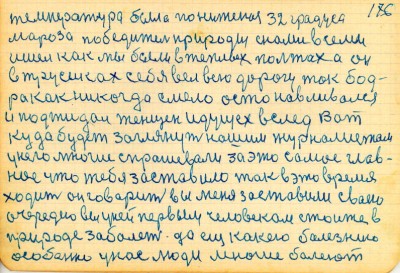 186
температура была пониженая 32 градуса
мароза победител природы снами всели
ишел как мы были втеплых полтах а он
втрусиках себя вел всю дорогу так бод-
ра как никогда смело останавливался
и поджидал женщен идущех вслед Вот
куда будет заглянут нашим журналистам
унего многие спрашевали за это самое глав-
ное что тебя заставило так в это время
ходит он говарит вы меня заставили сваею
очередю вы у ней первым человекам стоите в
природе заболет да ещ какею болезнию
особенно у нас люди многие болеют